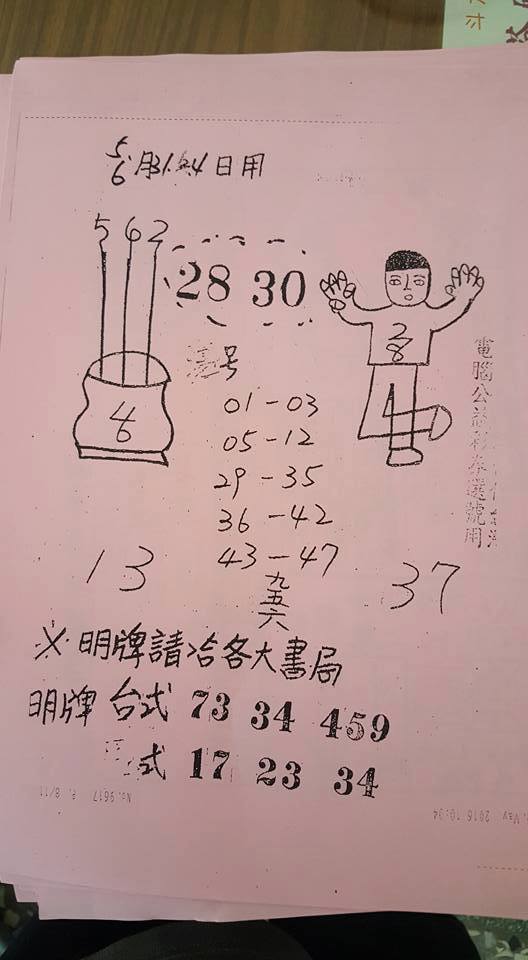 5.6月31.2.4日用
5 6 2
28 30
2
8
4
6
号
01-03
05-12
29-35
36-42
43-47
九五六
13
37
電腦公益彩券選號用
※明牌請洽各大書局
明牌 台式 73 34 459
式 17 23 34
No.9617 P. 8/11
May 2016 10:34